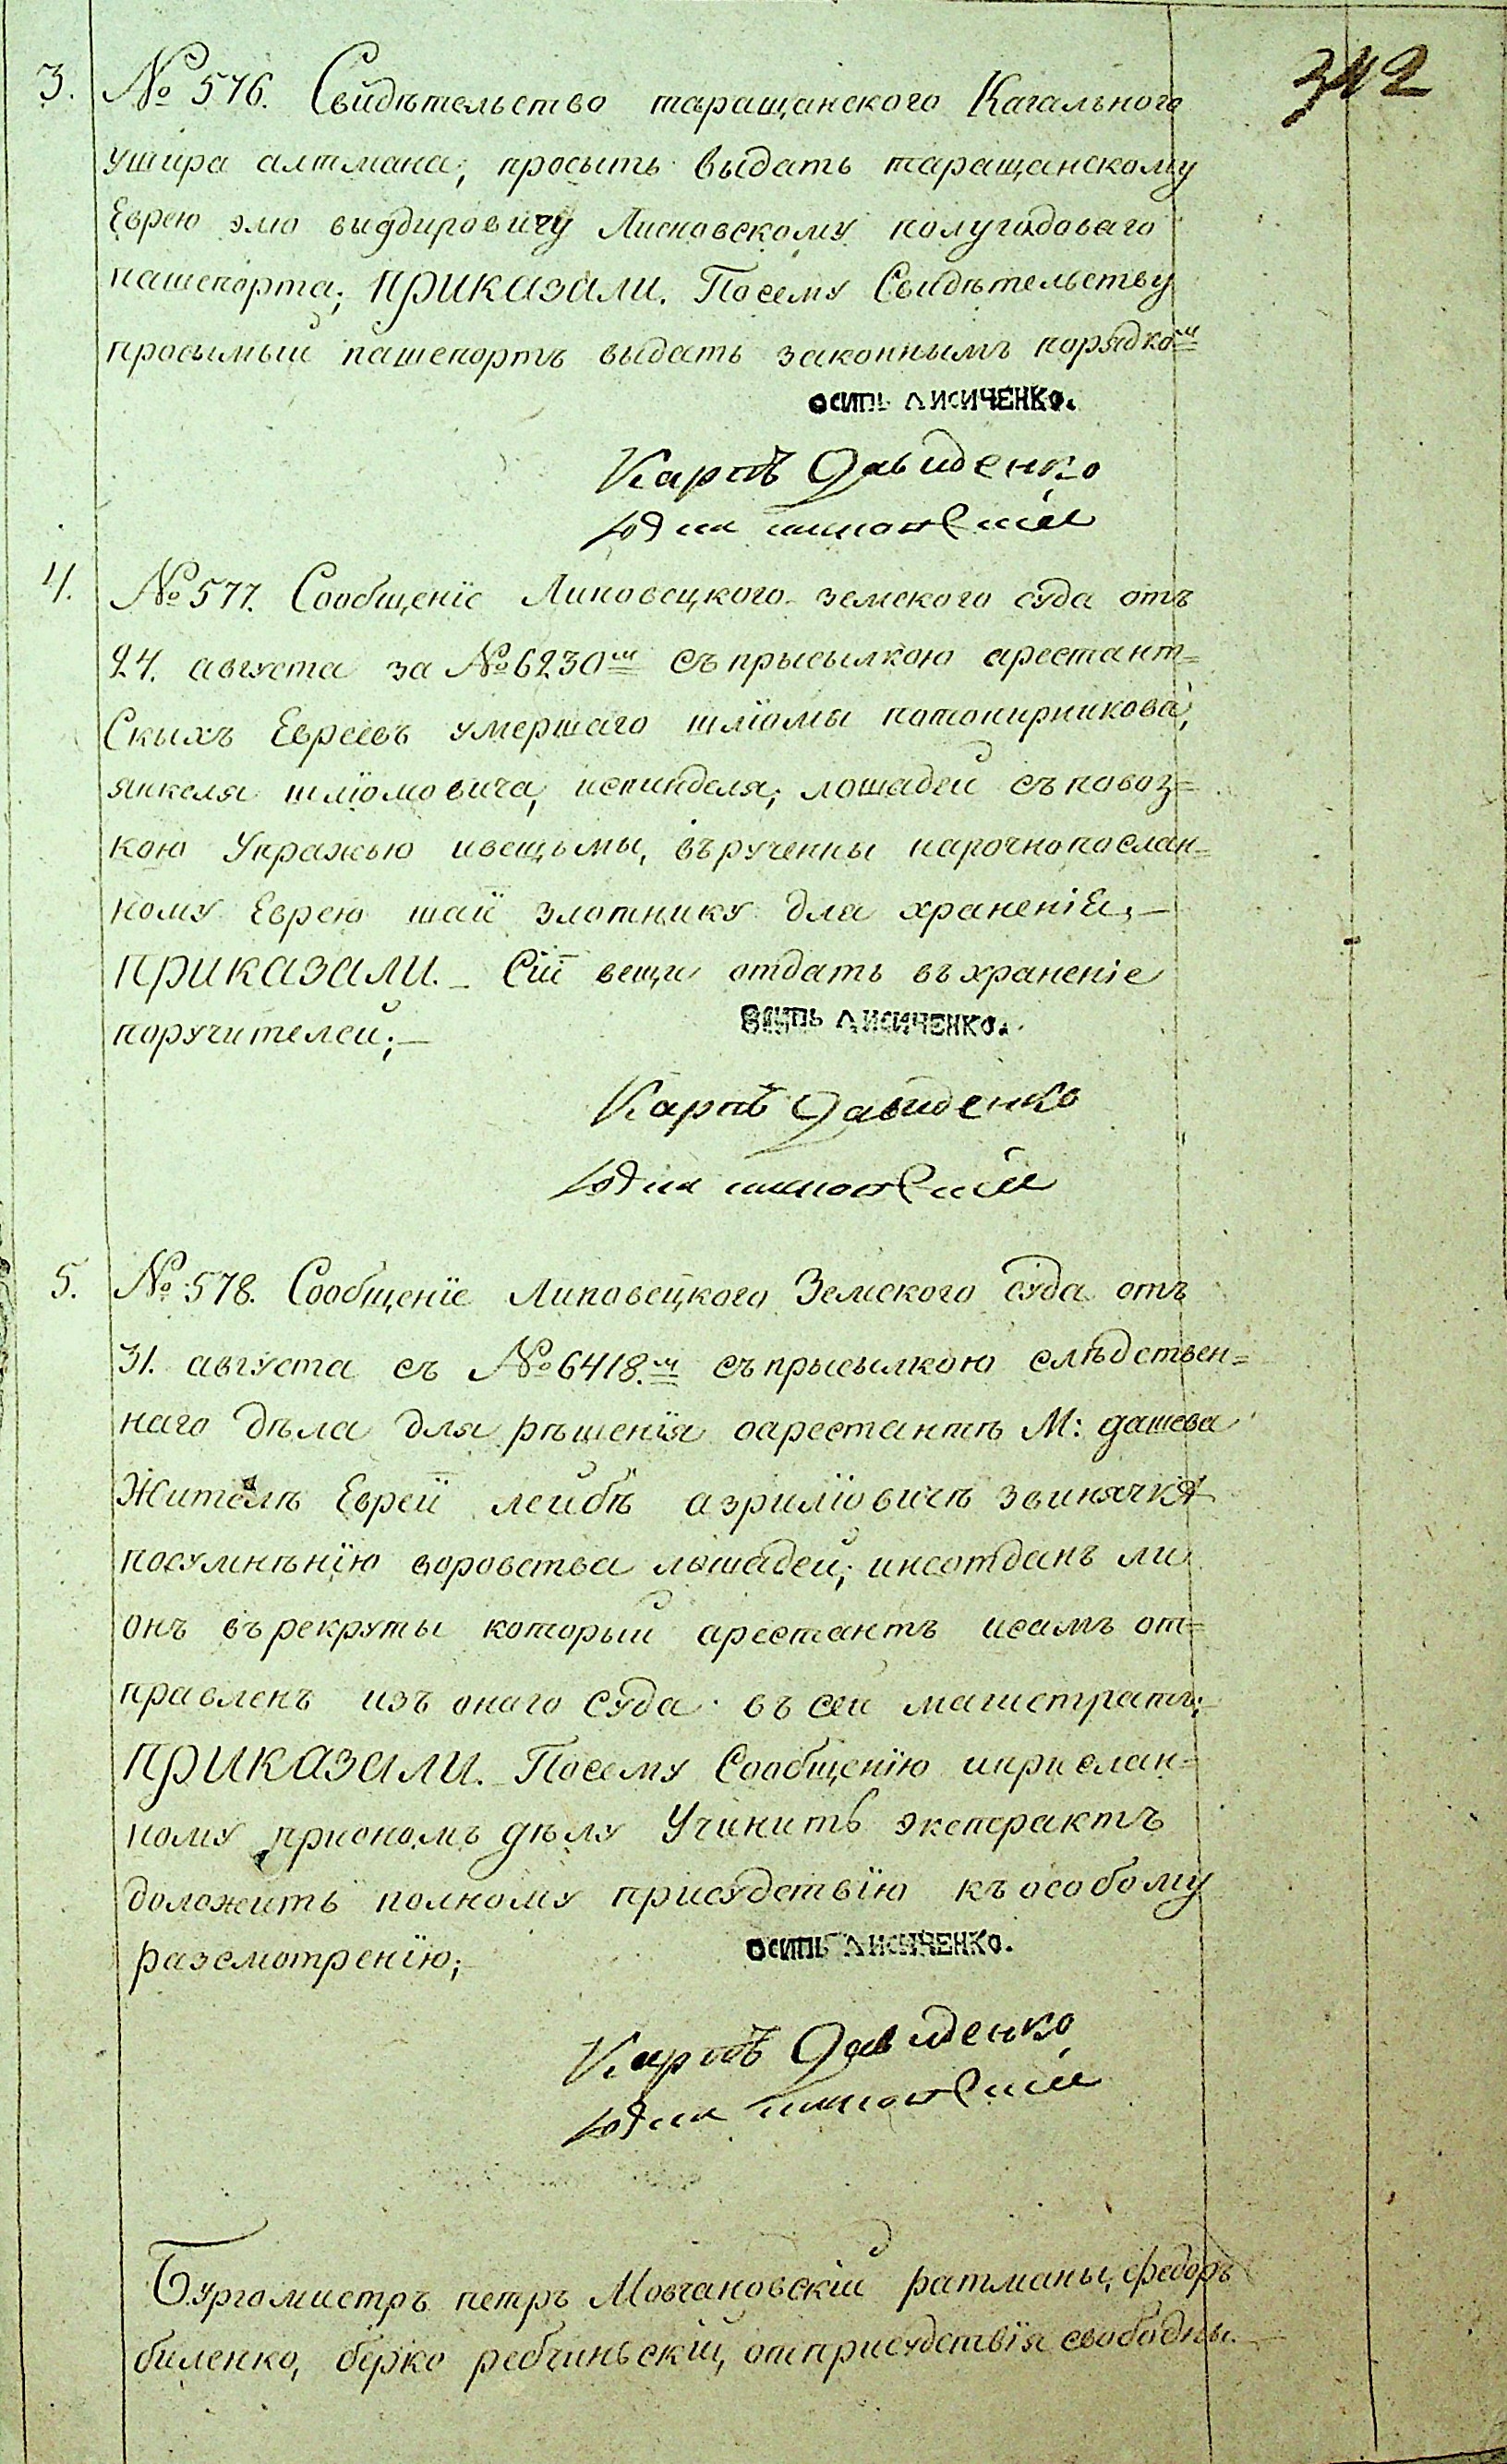 342
3. № 576. Свидѣтельство таращанского Кагального
ушира алтмана, просыть выдать таращанскому
Еврею элю выгдировичу Лисновскому полугодоваго
пашепорта; приказали. Посему Свидѣтельству
просымый пашепортъ выдать законнымъ порядкомъ
осипъ лисиченко.
Карпъ Давиденко
4. № 577. Сообщенїе Липовецкого земского суда отъ
24. августа за № 6230м съ прысылкою арестант=
Скыхъ Евреевъ умершаго шлїомы
янкеля шлїомовича, лошадей съ повоз=
кою Упражью ивещьмы, въручены нарочнопослан=
ному Еврею шаї злотнику для храненіи,—
приказали.— Сїи вещи отдать въхраненіе
поручителей;—
осипъ лисиченко.
Карпъ Давиденко
5. № 578. Сообщенїе Липовецкого Земского суда отъ
31. августа съ № 6418.м съпрысылкою слѣдствен=
наго дѣла для рѣшенїя оарестантѣ М: дашева
Жителѣ Еврей лейбѣ азрилїовичѣ звинячкѣ
посумнѣнїю воровства лошадей; инеотданъ ли
онъ върекруты который арестантъ исамъ от=
правленъ изъ оного Суда въ сей магистратъ;
приказали. Посему Сообщенїю иприслан=
ному приономъ дѣлу Учинить экстрактъ
доложить полному присудствїю къособому
разсмотренїю;
осипъ лисиченко.
Карпъ Давиденко
Бургомистръ петръ Мовчановскїй ратманы, федоръ
биленко, берко ребчиньскїй, отприсудствїя свободны.